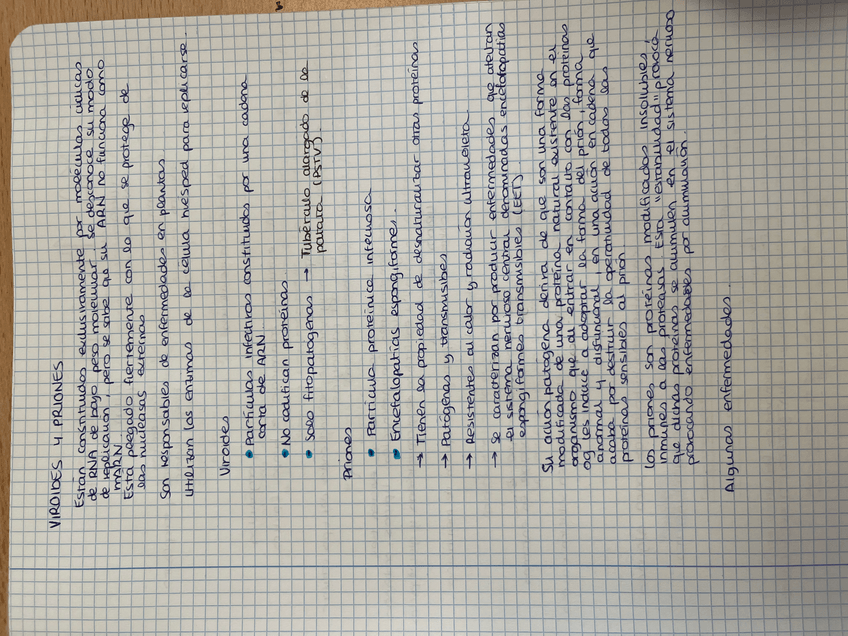 VIROIDES Y PRIONES
Están constituidos exclusivamente por moléculas cíclicas
de RNA de bajo peso molecular. Se desconoce su modo
de replicación, pero se sabe que su ARN no funciona como
mARN.
Está plegado fuertemente con lo que se protege de
las nucleasas externas
Son responsables de enfermedades en plantas
Utilizan las enzimas de la célula huésped para replicarse.
Viroides
• Partículas infectivas constituidos por una cadena
corta de ARN
• No codifican proteínas
• Solo fitopatogenas → Tubérculo alargado de la
patata (PSTV).
Priones
• Partícula proteinica infecciosa
• Encefalopatías espongiformes.
→ Tienen la propiedad de desnaturalizar otras proteínas
→ Patógenas y transmisibles
→ Resistentes al calor y radiación ultravioleta.
→ Se caracterizan por producir enfermedades que afectan
el sistema nervioso central denominadas encefalopatías
espongiformes transmisibles (EET).
Su acción patógena deriva de que son una forma
modificada de una proteína natural existente en el
organismo que al entrar en contacto con las proteínas
og les induce a adoptar la forma del prión, forma
anormal y disfuncional, en una acción en cadena que
acaba por destruir la operatividad de todas las
proteínas sensibles al prión
Los priones son proteínas modificadas insolubles,
inmunes a las proteasas. Esta "estabilidad" provoca
que dichas proteínas se acumulen en el sistema nervioso
provocando enfermedades por acumulación.
Algunas enfermedades.